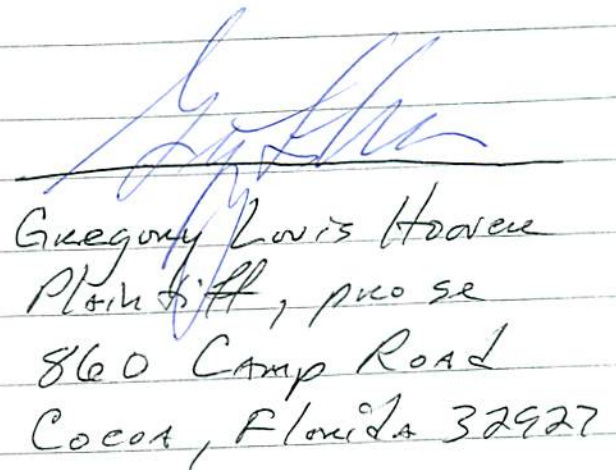 Gregory Louis Hoover
Plaintiff, pro se
860 Camp Road
Cocoa, Florida 32927